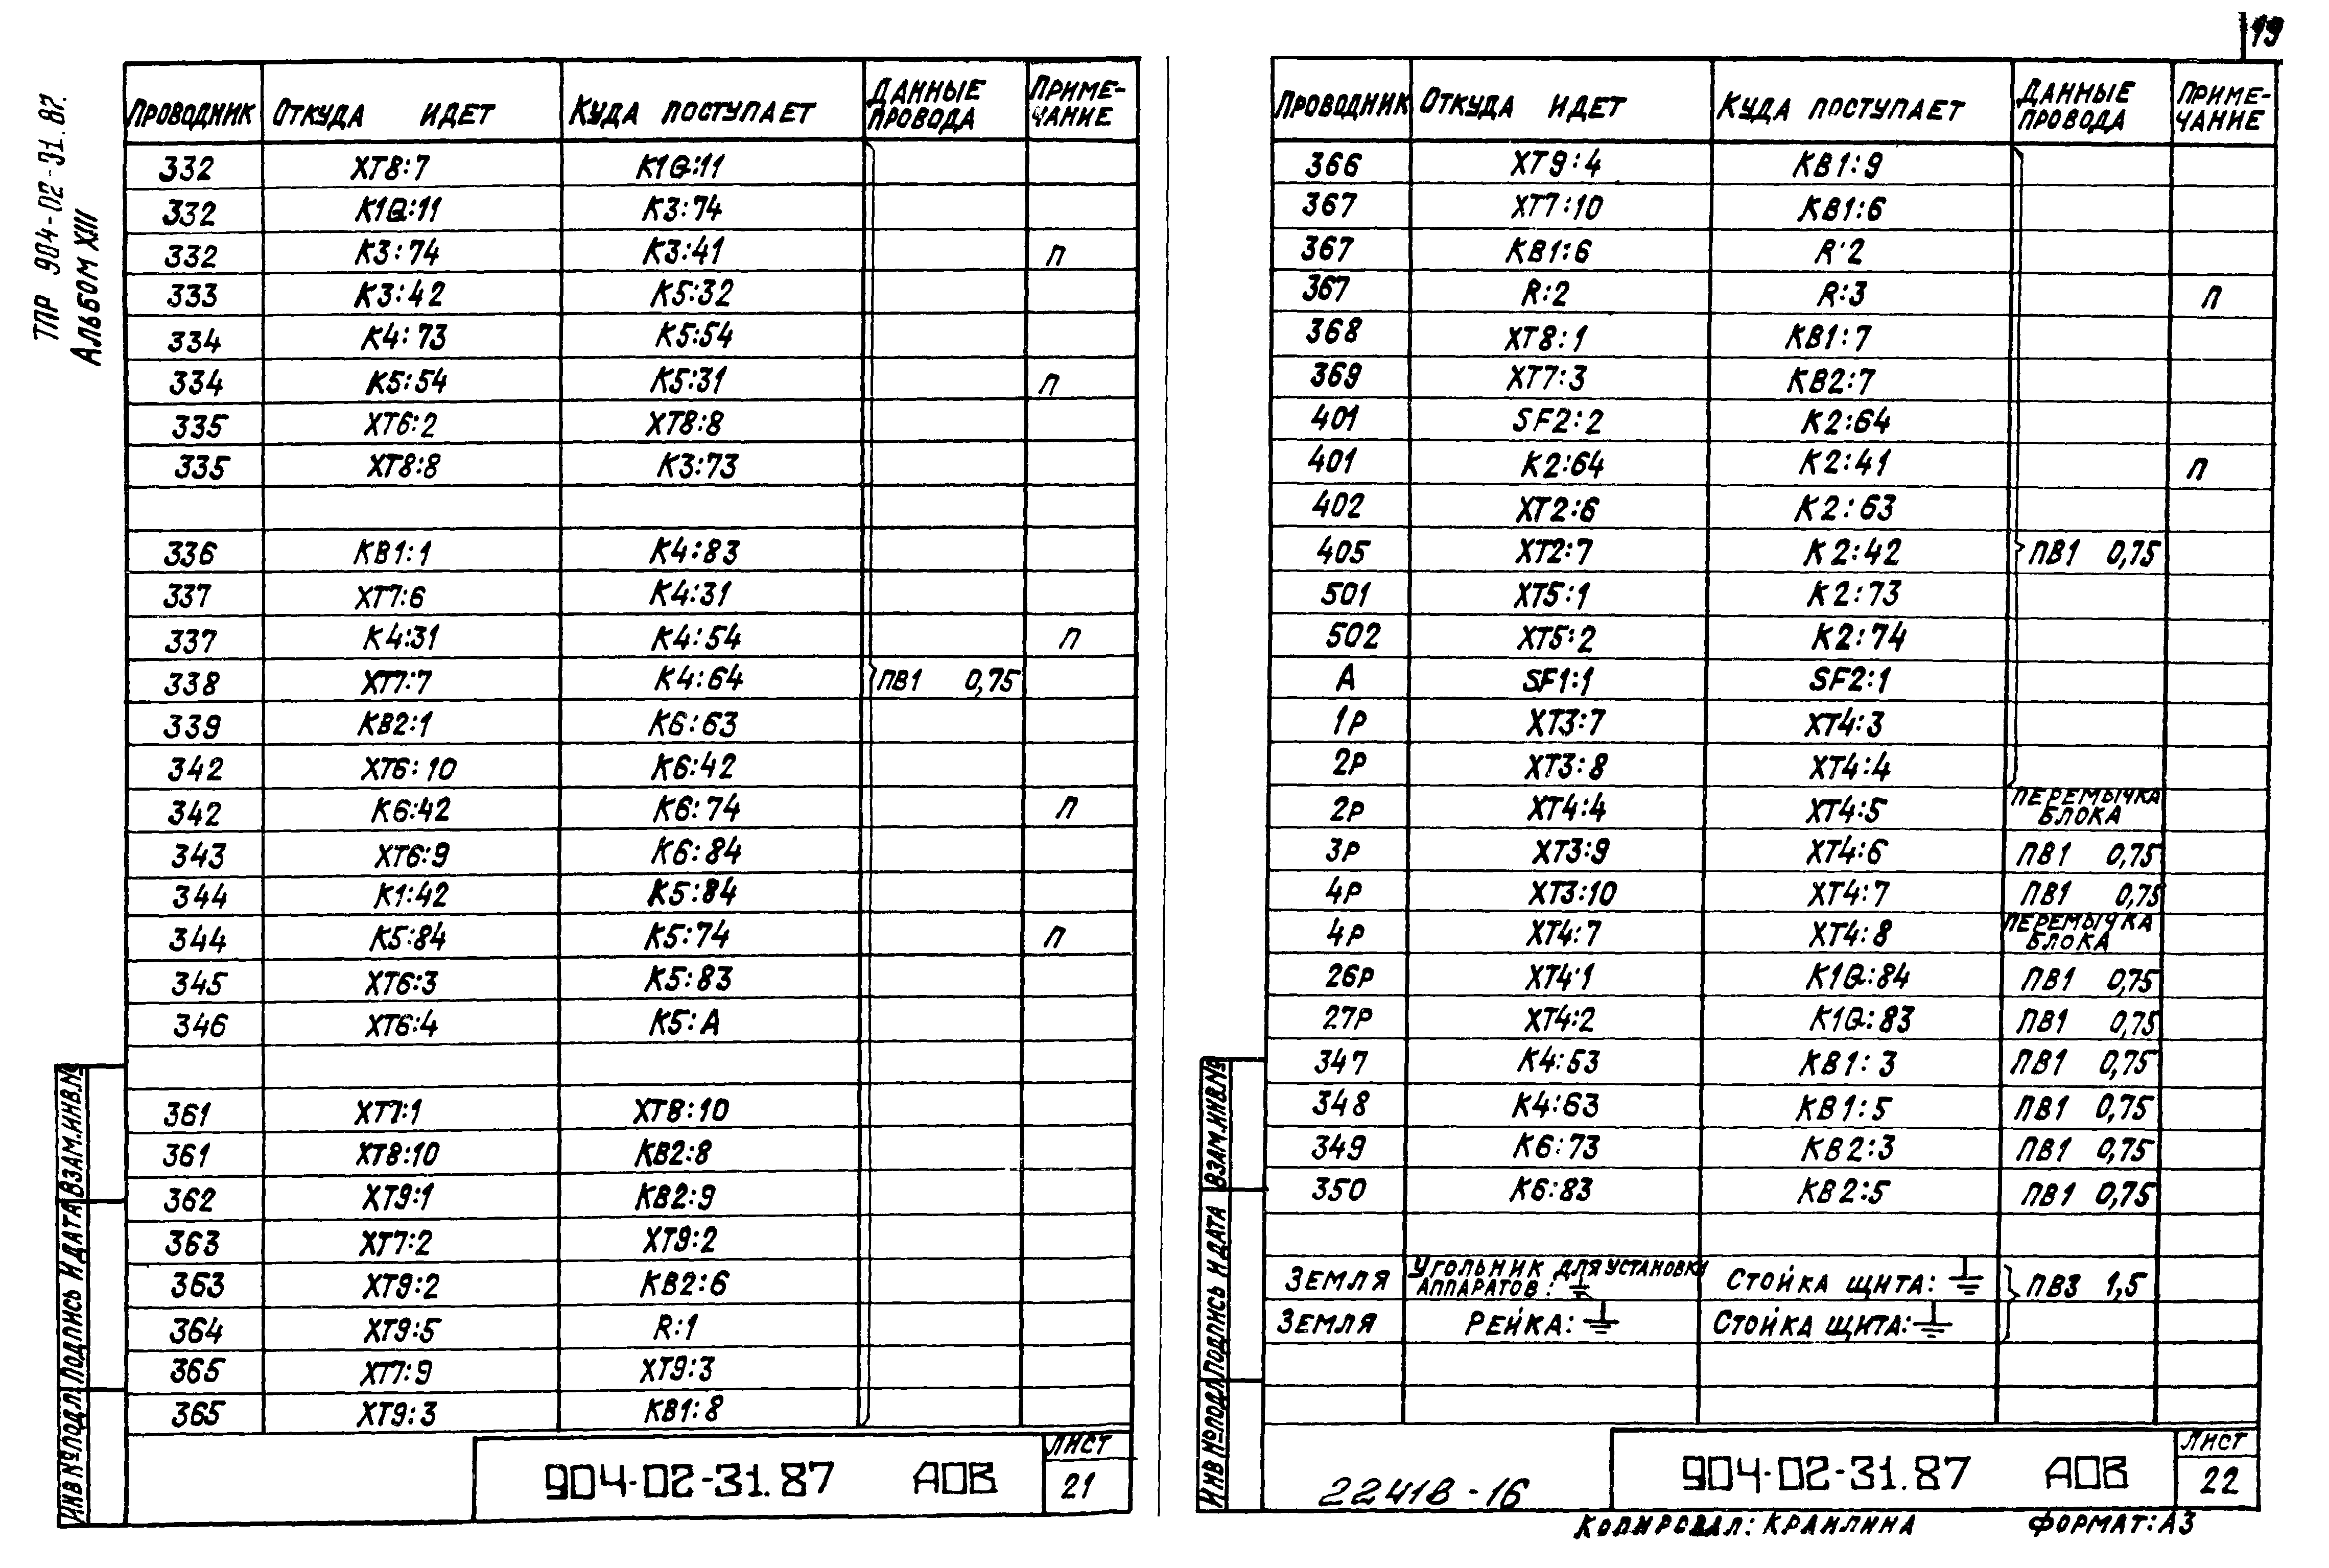 19
ТПР 904-02-31.87.
Альбом XIII
Проводник Откуда идет Куда поступает Данные провода Примечание
332 XT8:7 K1Q:11
332 K1Q:11 K3:74
332 K3:74 K3:41 П
333 K3:42 K5:32
334 K4:73 K5:54
334 K5:54 K5:31 П
335 XT6:2 XT8:8
335 XT8:8 K3:73
336 KB1:1 K4:83
337 XT7:6 K4:31
337 K4:31 K4:54 П
338 XT7:7 K4:64 ПВ1 0,75
339 KB2:1 K6:63
342 XT6:10 K6:42
342 K6:42 K6:74 П
343 XT6:9 K6:84
344 K1:42 K5:84
344 K5:84 K5:74 П
345 XT6:3 K5:83
346 XT6:4 K5:A
361 XT7:1 XT8:10
361 XT8:10 KB2:8
362 XT9:1 KB2:9
363 XT7:2 XT9:2
363 XT9:2 KB2:6
364 XT9:5 R:1
365 XT7:9 XT9:3
365 XT9:3 KB1:8
Инв №подл. Подпись и дата Взам.инв.№
904-02-31.87 АОВ
Лист
21
Проводник Откуда идет Куда поступает Данные провода Примечание
366 XT9:4 KB1:9
367 XT7:10 KB1:6
367 KB1:6 R:2
367 R:2 R:3 П
368 XT8:1 KB1:7
369 XT7:3 KB2:7
401 SF2:2 K2:64
401 K2:64 K2:41 П
402 XT2:6 K2:63
405 XT2:7 K2:42 ПВ1 0,75
501 XT5:1 K2:73
502 XT5:2 K2:74
A SF1:1 SF2:1
1P XT3:7 XT4:3
2P XT3:8 XT4:4
2P XT4:4 XT4:5 Перемычка блока
3P XT3:9 XT4:6 ПВ1 0,75
4P XT3:10 XT4:7 ПВ1 0,75
4P XT4:7 XT4:8 Перемычка блока
26P XT4:1 K1Q:84 ПВ1 0,75
27P XT4:2 K1Q:83 ПВ1 0,75
347 K4:53 KB1:3 ПВ1 0,75
348 K4:63 KB1:5 ПВ1 0,75
349 K6:73 KB2:3 ПВ1 0,75
350 K6:83 KB2:5 ПВ1 0,75
Земля Угольник для установки аппаратов: ⏚ Стойка щита: ⏚ ПВ3 1,5
Земля Рейка: ⏚ Стойка щита: ⏚
Инв №подл. Подпись и дата Взам.инв.№
22418-16
904-02-31.87 АОВ
Лист
22
Копировал: Кранлина Формат: А3